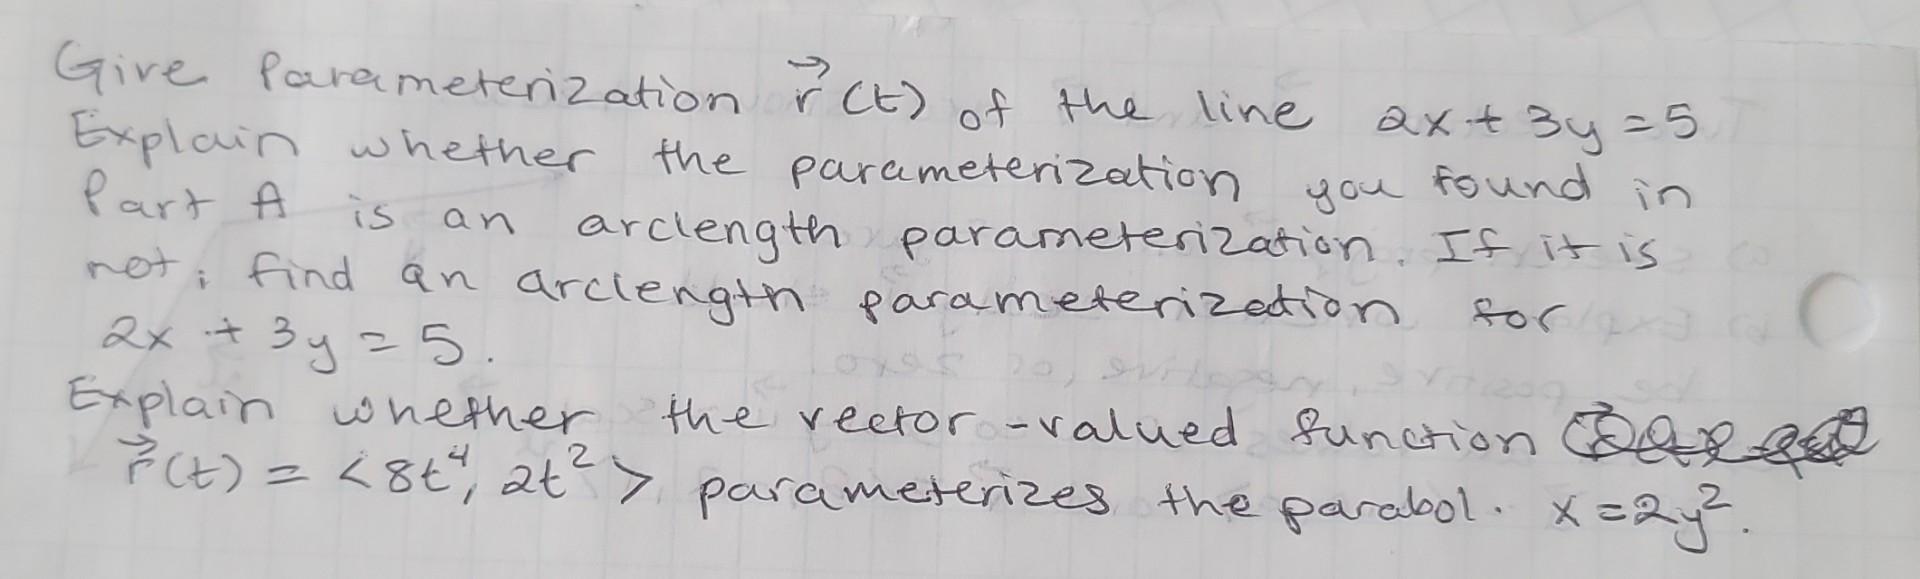 Give Parameterization r⃗(t) of the line 2x + 3y = 5
Explain whether the parameterization you found in
Part A is an arclength parameterization. If it is
not, find an arclength parameterization for
2x + 3y = 5.
Explain whether the vector-valued function
r⃗(t) = <8t⁴, 2t²> parameterizes the parabol. x = 2y².